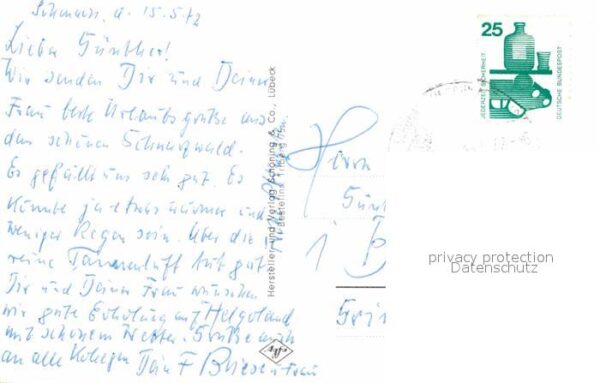 a. 15.5.72
Lieber Günther!
Wir senden Dir und Deiner
Frau beste Urlaubsgrüße aus
dem schönen Schwarzwald.
Es gefällt uns sehr gut. Es
könnte ja etwas wärmer und
weniger Regen sein. Aber die
reine Tannenluft tut gut
Dir und Deiner Frau wünschen
wir gute Erholung auf Helgoland
mit schönem Wetter. Grüße auch
an alle Kollegen Dein F Briese u Frau
Hersteller und Verlag Schöning & Co., Lübeck
Bestellnr.
Agfa
25
JEDERZEIT SICHERHEIT
DEUTSCHE BUNDESPOST
Herrn
Günt
1 B
privacy protection
Datenschutz